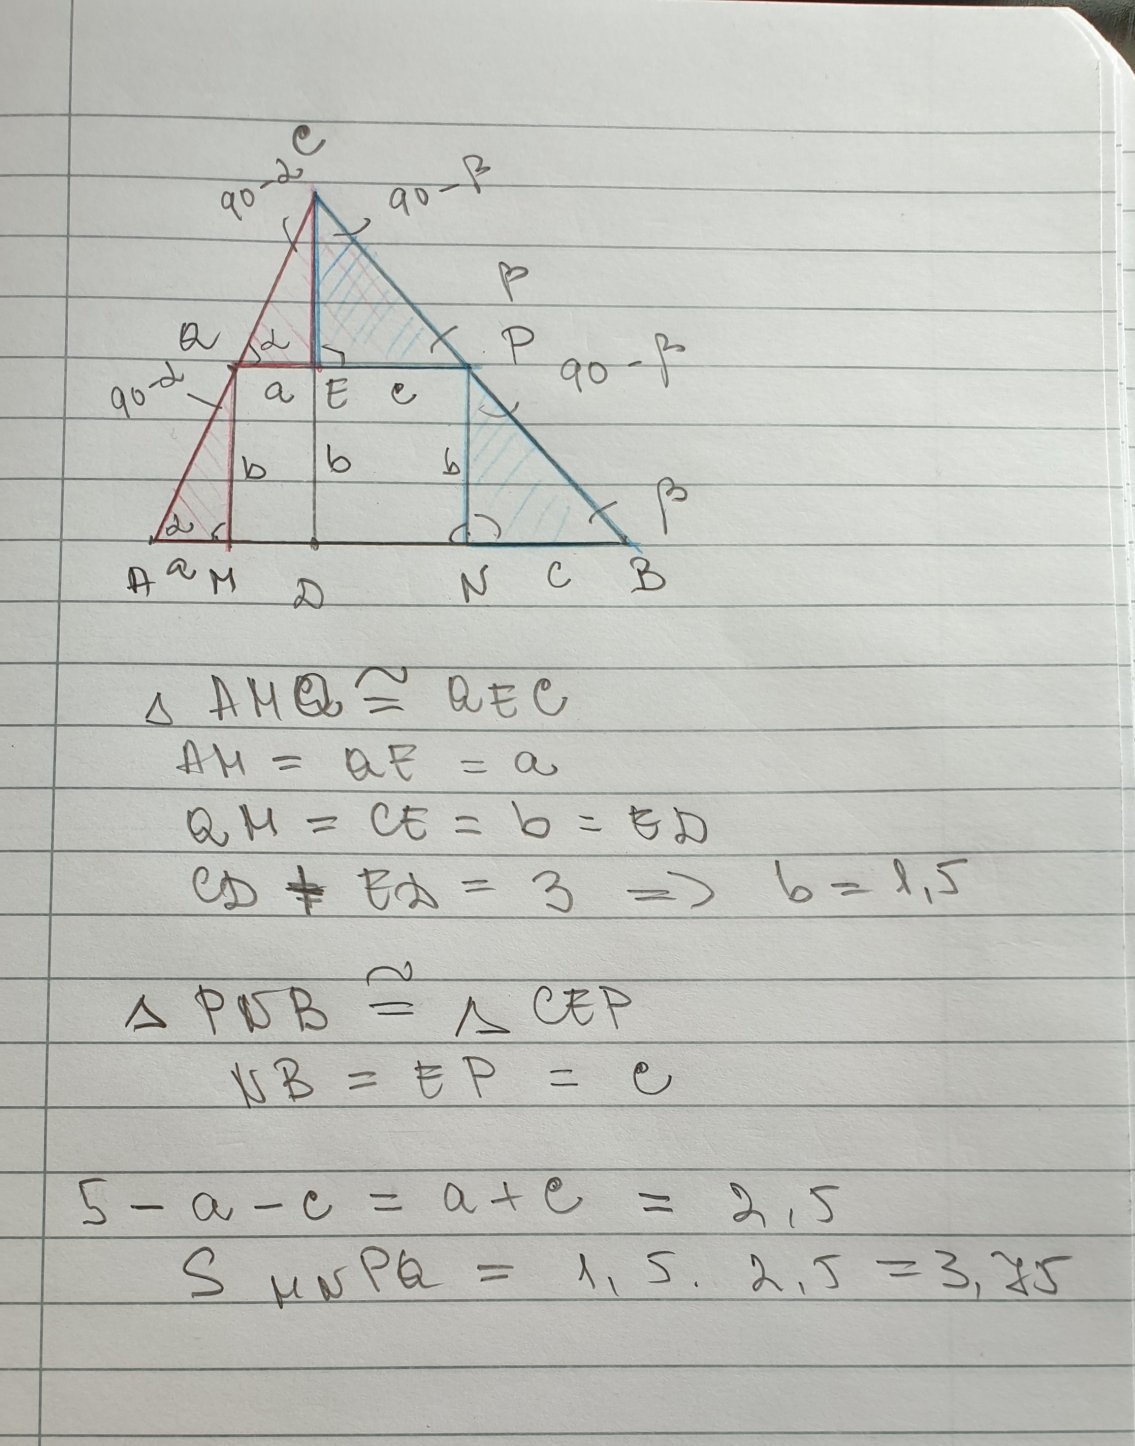 C
90-α 90-β
β
Q α P 90-β
90-α a E c
b b b
α β
A a M D N C B
△ AMQ ≅ QEC
AM = QE = a
QM = CE = b = ED
CD ≠ ED = 3 => b = 1,5
△ PNB ≅ △ CEP
NB = EP = c
5 - a - c = a + c = 2,5
S MNPQ = 1,5. 2,5 = 3,75